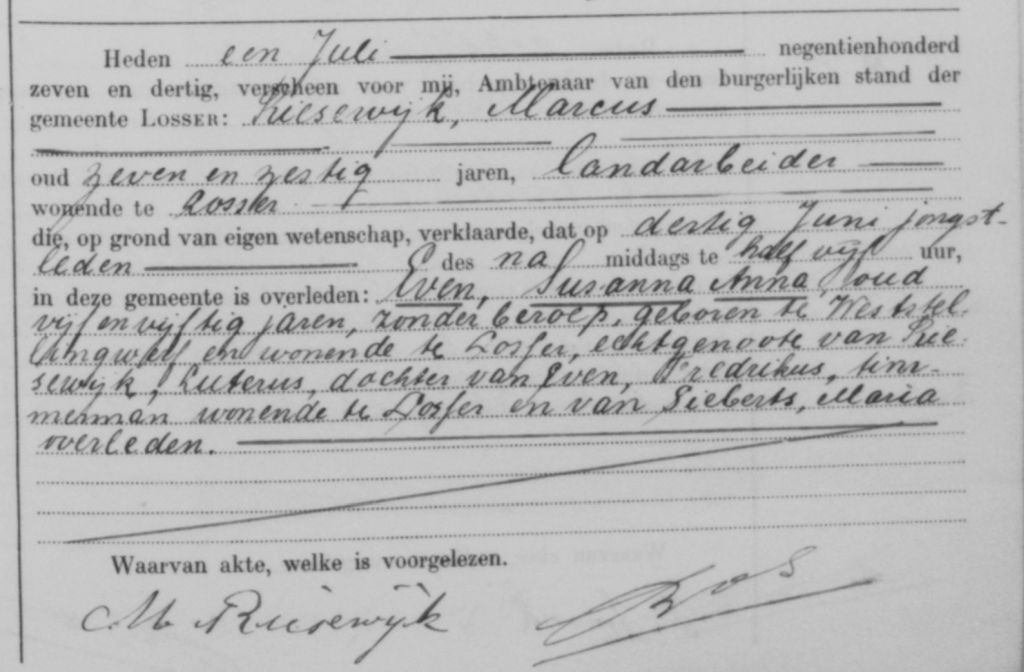 Heden een Juli negentienhonderd
zeven en dertig, verscheen voor mij, Ambtenaar van den burgerlijken stand der
gemeente LOSSER: Riesewijk, Marcus
oud zeven en zestig jaren, landarbeider
wonende te Losser
die, op grond van eigen wetenschap, verklaarde, dat op dertig Juni jongst-
leden des na middags te half vijf uur,
in deze gemeente is overleden: Even, Susanna Anna, oud
vijf en vijftig jaren, zonder beroep, geboren te Weststel-
lingwerf en wonende te Losser, echtgenoote van Rie-
sewijk, Luterus, dochter van Even, Fredrikus, tim-
merman wonende te Losser en van Sieberts, Maria
overleden.
Waarvan akte, welke is voorgelezen.
M Riesewijk Bos